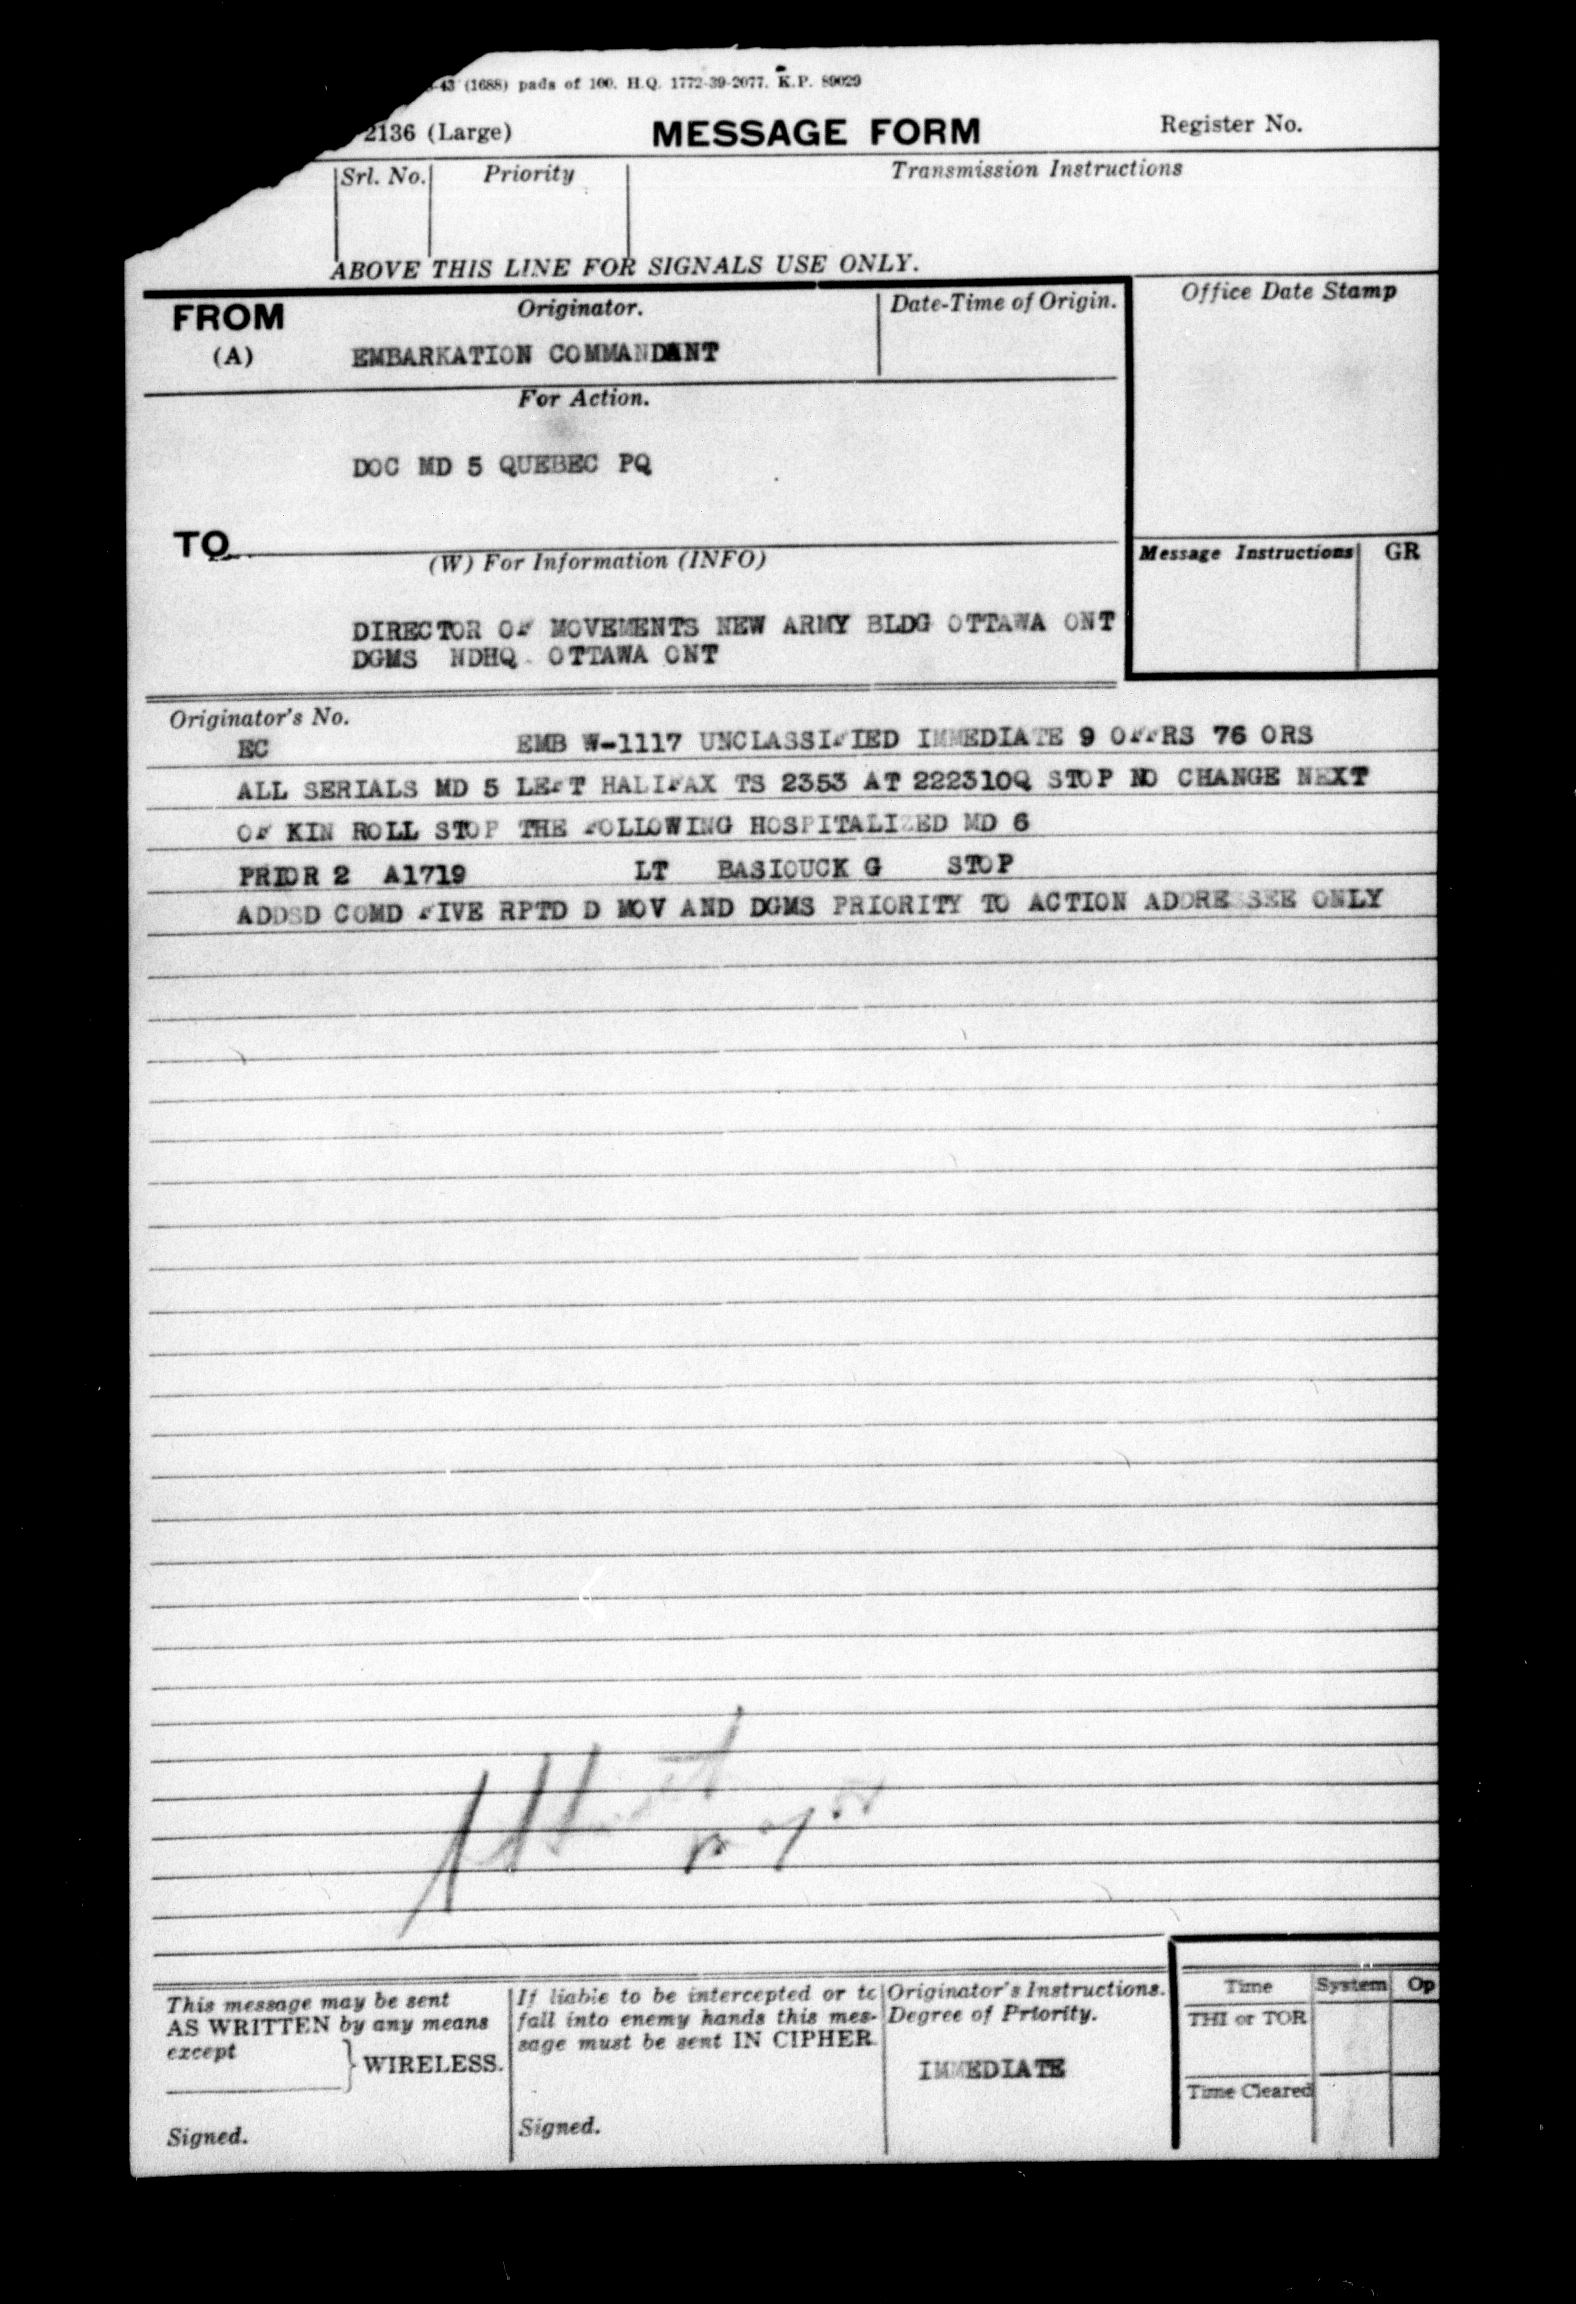 -43 (1688) pads of 100. H.Q. 1772-39-2077. K.P. 89029
2136 (Large) MESSAGE FORM Register No.
Srl. No. Priority Transmission Instructions
ABOVE THIS LINE FOR SIGNALS USE ONLY.
FROM Originator. Date-Time of Origin. Office Date Stamp
(A) EMBARKATION COMMANDANT
For Action.
DOC MD 5 QUEBEC PQ
TO
(W) For Information (INFO) Message Instructions GR
DIRECTOR OF MOVEMENTS NEW ARMY BLDG OTTAWA ONT
DGMS NDHQ OTTAWA ONT
Originator's No.
EC EMB W-1117 UNCLASSIFIED IMMEDIATE 9 OFFRS 76 ORS
ALL SERIALS MD 5 LEFT HALIFAX TS 2353 AT 222310Q STOP NO CHANGE NEXT
OF KIN ROLL STOP THE FOLLOWING HOSPITALIZED MD 6
PRIOR 2 A1719 LT BASIOUCK G STOP
ADDSD COMD FIVE RPTD D MOV AND DGMS PRIORITY TO ACTION ADDRESSEE ONLY
This message may be sent
AS WRITTEN by any means
except
WIRELESS.
Signed.
If liable to be intercepted or to
fall into enemy hands this mes-
sage must be sent IN CIPHER
Signed.
Originator's Instructions.
Degree of Priority.
IMMEDIATE
Time System Op
THI or TOR
Time Cleared